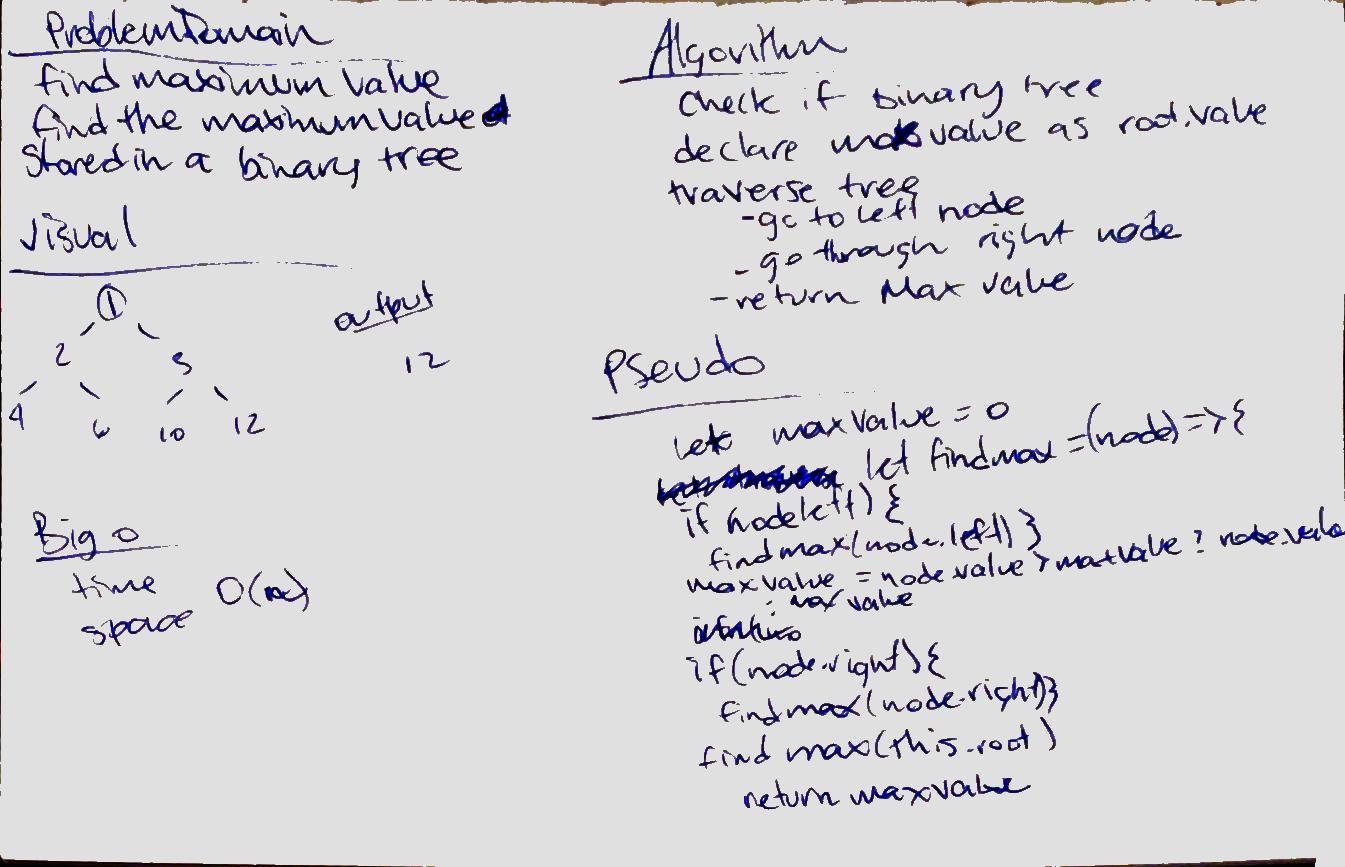 Problem Domain
find maximum value
find the maximum value
Stored in a binary tree
Visual
1
2
4 6 10 12
output
12
Big O
time
space
Algorithm
Check if binary tree
declare max value as root.value
traverse tree
- go to left node
- go through right node
- return Max value
Pseudo
let maxValue = 0
let findmax = (node) => {
if node left) {
findmax(node.left) }
maxvalue = node.value > maxvalue ? node.value
: maxvalue
if(node.right) {
findmax(node.right)}
find max(this.root)
return maxvalue